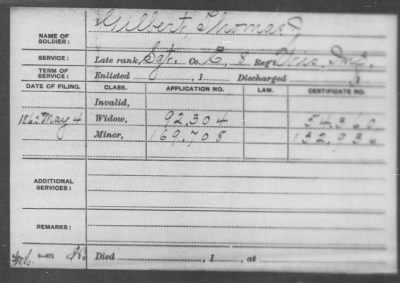 NAME OF SOLDIER: Gilbert, Thomas J
SERVICE: Late rank, Sgt. Co. E, 5 Reg't Wis. Inf.
TERM OF SERVICE: Enlisted , 1 Discharged , 1
DATE OF FILING. CLASS. APPLICATION NO. LAW. CERTIFICATE NO.
Invalid,
1865 May 4 Widow, 92,304 54,360
Minor, 169,708 132,936
ADDITIONAL SERVICES:
REMARKS:
Died , 1 , at